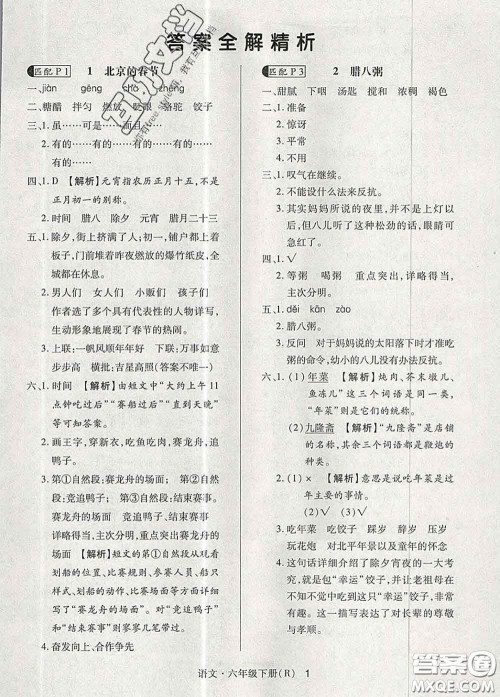 答案全解精析
匹配P1 1 北京的春节
一、jiān gē zhá zhēng
二、糖醋 拌匀 燃放 眨眼 骆驼 饺子
三、1. 虽……可是……而且……
2. 有的……有的……有的……有的……
四、1. D 【解析】元宵指农历正月十五,不是
正月初一的别称。
2. 时间 腊八 除夕 元宵 正月二十三
五、1. 除夕,街上挤满了人;初一,铺户都上着
板子,门前堆着昨夜燃放的爆竹纸皮,全
城都在休息。
2. 男人们 女人们 小贩们 孩子们
选择多个具有代表性的人物详写,
生动形象地展现了春节的热闹。
3. 上联:一帆风顺年年好 下联:万事如意
步步高 横批:吉星高照(答案不唯一)
六、1. 时间 【解析】由短文中“大约上午11
点钟吃过后”“赛船过后”“直到天晚”
等可知答案。
2. 画王字,穿新衣,吃鱼吃肉,赛龙舟,追
鸭子。
3. 第①自然段:赛龙舟的场面 第②自然
段:竞追鸭子。 第③自然段:结束赛事。
详略得当,重点突出 详写赛龙舟的
场面 【解析】短文的第①自然段就对
划船的位置、比赛规则、划船手的动作
等进行了描写。对“竞追鸭子”和“结
束赛事”一笔带过。
4. 奋发向上、合作争先
匹配P3 2 腊八粥
一、甜腻 下咽 汤匙 搅和 浓稠 褐色
二、1. 准备
2. 惊讶
3. 平常
4. 不用
三、1. 叹气在继续。
2. 不能设什么法来反抗。
3. 其实妈妈所说的夜里,并不是上灯以
后,但八儿听了这种松劲的话,眼睛可
急红了。
四、1. ✓
2. 等粥 喝粥 重点突出,详略得当,
主次分明。
五、1. dùn kān zǎo
2. 腊八粥
3. 反问 对于妈妈说的太阳落下时才吃
粥的命令,幼小的八儿没有办法反抗。
六、1. (1)年菜 【解析】炖肉、芥末墩儿、
鱼冻儿”这三个词语是同一类,
“年菜”是对这三个词语的概括。
(2)九隆斋 【解析】“九隆斋”是店铺
的名称,其余三个词语都是鞭炮的
种类。
2. (1)× 【解析】意思是说吃年菜是过
年主要的事情。
(2)✓ (3)✓
3. 吃年菜 吃饺子 踩岁 辞岁 守岁
玩花炮 对北平年景以及童年的怀念
4. 这句话详细介绍了除夕守夜的一大考
究,就是包“幸运”饺子,并让老祖母在
不知不觉中吃到“幸运”饺子,衬托出
老北京的传统习俗,表达对长辈的尊敬
与孝顺。
语文·六年级下册(R) 1